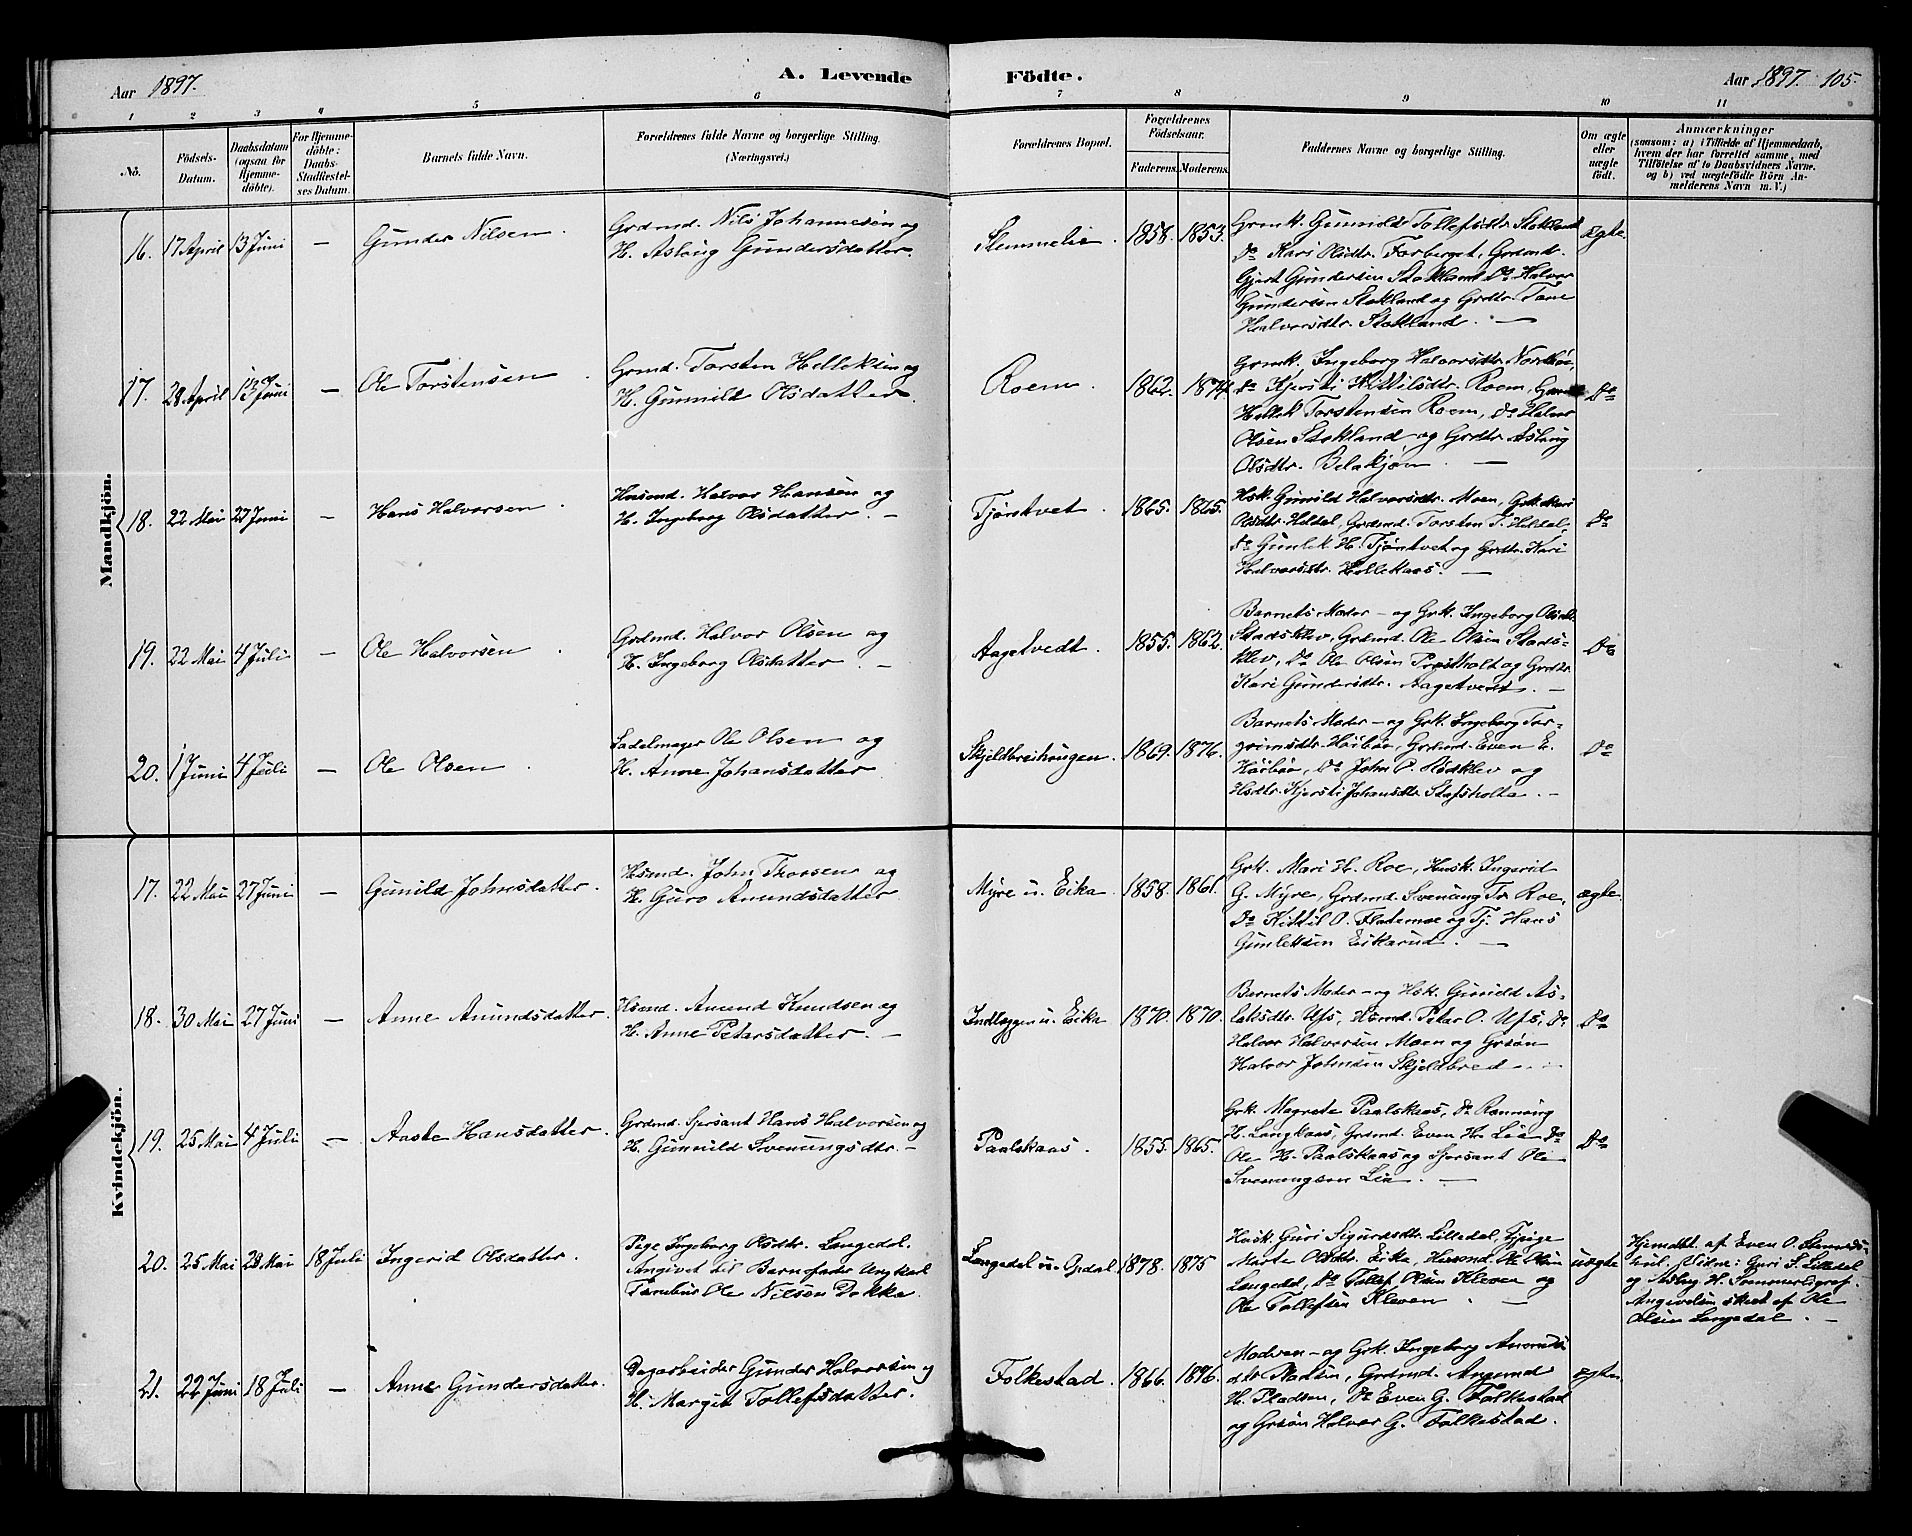 Aar 1897.
A. Levende
Födte.
Aar 1897. 105.
1 2 3 4 5 6 7 8 9 10 11
No.
Födsels-
Datum.
Daabsdatum
(ogsaa for
Hjemme-
döbte).
For Hjemme-
döbte:
Daabs-
Stadfæstel-
ses Datum.
Barnets fulde Navn.
Forældrenes fulde Navne og borgerlige Stilling.
(Næringsvei.)
Forældrenes Bopæl.
Forældrenes
Födselsaar.
Faderens. Moderens.
Faddernes Navne og borgerlige Stilling.
Om ægte
eller
uægte
födt.
Anmærkninger
(saasom: a) i Tilfælde af Hjemmedaab,
hvem der har forrettet samme, med
Tilföielse af to Daabsvidners Navne,
og b) ved uægtefödte Börn An-
melderens Navn m. V.)
Mandkjön.
16. 17 April 13 Juni — Gunder Nilsen.
Grdmd. Nils Johannesen og
H. Aslaug Gundersdatter.
Stemmelie. 1858. 1853.
Grmk. Gunnild Tollefsdtr. Stokland
Do Kari Olsdtr. Forberget, Grdmd.
Gjert Gundersen Stokland Do Halvor
Gundersen Stokland og Grdtr. Tone
Halvorsdtr. Stokland. —
ægte.
17. 28 April 13 Juni — Ole Torstensen
Grmd. Torsten Helleksen og
H. Gunnild Olsdatter.
Roem. 1862. 1874.
Grmk. Ingeborg Halvorsdtr. Nordbøe,
Do Kjersti Kittilsdtr. Roem,
Hellek Torstensen Roem, Do Halvor
Olsen Stokland og Grdtr. Aslaug
Olsdtr. —
Do
18. 22 Mai 27 Juni — Hans Halvorsen.
Husmd. Halvor Hansen og
H. Ingeborg Olsdatter. —
Tjøntvet. 1865. 1865.
Hsk. Gunild Halvorsdtr. Moen, Grk. Mari
Olsdtr. Heldal, Grdmd. Torsten T. Heldal,
Do Gunlek H. Tjøntvet og Grdtr. Kari
Halvorsdtr. Hellekaas. —
Do
19. 22 Mai 4 Juli — Ole Halvorsen
Grdmd. Halvor Olsen og
H. Ingeborg Olsdatter. —
Aagetvedt. 1855. 1862.
Barnets Moder — og Grk. Ingeborg Olsdtr.
Stadsklev, Grdmd. Ole Olsen Stads-
klev, Do Ole Olsen Præstholt og Grdtr.
Kari Gundersdtr. Aagetvedt. —
Do
20. 1 Juni 4 Juli — Ole Olsen.
Sadelmager Ole Olsen og
H. Anne Johansdatter
Skjeldbreihaugen. 1869. 1876.
Barnets Moder — og Grk. Ingeborg Tor-
grimsdtr. Haibøe, Grdmd. Even E.
Haibøe, Do John P. Rødklev og
Hsdtr. Kjersti Johansdtr. Stafsholte. —
Do
Kvindekjön.
17. 22 Mai 27 Juni — Gunild Johnsdatter.
Husmd. John Thorsen og
H. Guro Anundsdatter
Myre u. Eika. 1858. 1861.
Grk. Mari H. Roe, Husk. Ingerid
G. Myre, Grdmd. Svenung Tr. Roe,
Do Kittil O. Flatemoe og Tj. Hans
Gunleksen Eikarud. —
ægte.
18. 30 Mai 27 Juni — Anne Anundsdatter.
Husmd. Anund Knudsen og
H. Anne Petersdatter. —
Indlæggen u. Eika 1870. 1870.
Barnets Moder — og Hsk. Gunild As-
laksdtr. Ufs, Husmd. Peter O. Ufs, Do
Halvor Halvorsen Moen og Grsøn
Halvor Johnsen Skjeldbred —
Do
19. 25 Mai 4 Juli — Aaste Hansdatter.
Grdmd. Sersant Hans Halvorsen og
H. Gunnild Svenungsdtr. —
Paalskaas. 1855. 1865.
Grk. Magrete Paalskaas, Do Rannaug
H. Langkaas, Grdmd. Even H. Lia Do
Ole H. Paalskaas og Sersant Ole
Svenungsen Lia. —
Do
20. 25 Mai 28 Mai 18 Juli Ingerid Olsdatter.
Pige Ingeborg Olsdtr. Langedal.
Angivet til Barnefader Ungkarl
Tambur Ole Nilsen Dokka.
Langedal u. Opdal 1878. 1875
Husk. Guri Sigurdsdtr. Lilledal, Tjpige
Marte Olsdtr. Eika, Husmd. Ole Olsen
Langedal, Do Tollef Olsen Kleven og
Ole Tollefsen Kleven. —
uægte
Hjemdbt. af Even O.
Vidne: Guri S. Lilledal
og Aslaug H.
Angivelsen skeet af Ole
Olsen Langedal. —
21. 22 Juni 18 Juli — Anne Gundersdatter.
Dagarbeider Gunder Halvorsen og
H. Margit Tollefsdatter.
Folkestad. 1866. 1876.
Modren — og Grk. Ingeborg Anunds-
dtr. Pladsen, Grdmd. Angrend
H. Pladsen, Do Even G. Folkestad
og Grsøn Halvor G. Folkestad.
ægte.